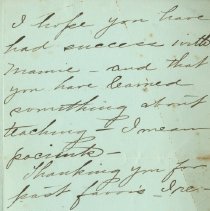 I hope you have
had success with
Mamie – and that
you have learned
something about
teaching – I mean
Thanking you for
past favors – I re-